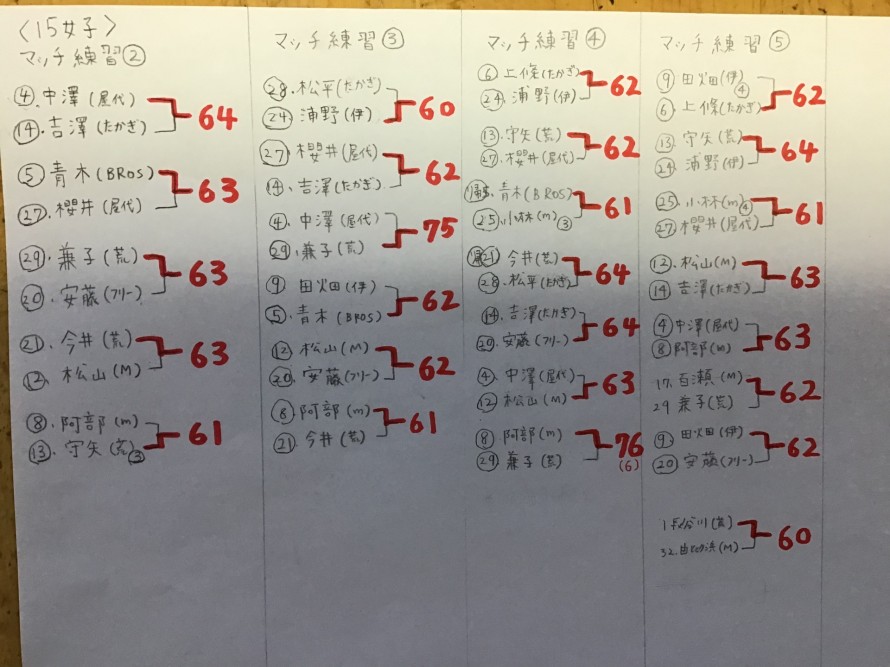 〈15女子〉
マッチ練習②
④.中澤(屋代)
64
⑭.吉澤(たかぎ)
⑤青木(BROS)
63
㉗.櫻井(屋代)
㉙.兼子(荒)
63
⑳.安藤(フリー)
㉑.今井(荒)
63
⑫.松山(M)
⑧.阿部(m)
61
⑬.守矢(荒)③
マッチ練習③
㉘.松平(たかぎ)
60
㉔浦野(伊)
㉗.櫻井(屋代)
62
⑭.吉澤(たかぎ)
④.中澤(屋代)
75
㉙、兼子(荒)
⑨田畑(伊)
62
⑤.青木(BROS)
⑫松山(M)
62
⑳.安藤(フリー)
⑧阿部(m)
61
㉑.今井(荒)
マッチ練習④
⑥上條(たかぎ)
62
㉔浦野(伊)
⑬.守矢(荒)
62
㉗.櫻井(屋代)
青木(BROS)
61
㉕.小林(m)③
㉑今井(荒)
64
㉘.松平(たかぎ)
⑭.吉澤(たかぎ)
64
⑳.安藤(フリー)
④中澤(屋代)
63
⑫松山(M)
⑧阿部(m)
76
(6)
㉙兼子(荒)
マッチ練習⑤
⑨田畑(伊)④
62
⑥上條(たかぎ)
⑬守矢(荒)
64
㉔浦野(伊)
㉕小林(m)④
61
㉗櫻井(屋代)
⑫.松山(M)
63
⑭吉澤(たかぎ)
④中澤(屋代)
63
⑧阿部(m)
17.百瀬(M)
62
29兼子(荒)
⑨.田畑(伊)
62
⑳安藤(フリー)
1長谷川(荒)
60
32.(M)